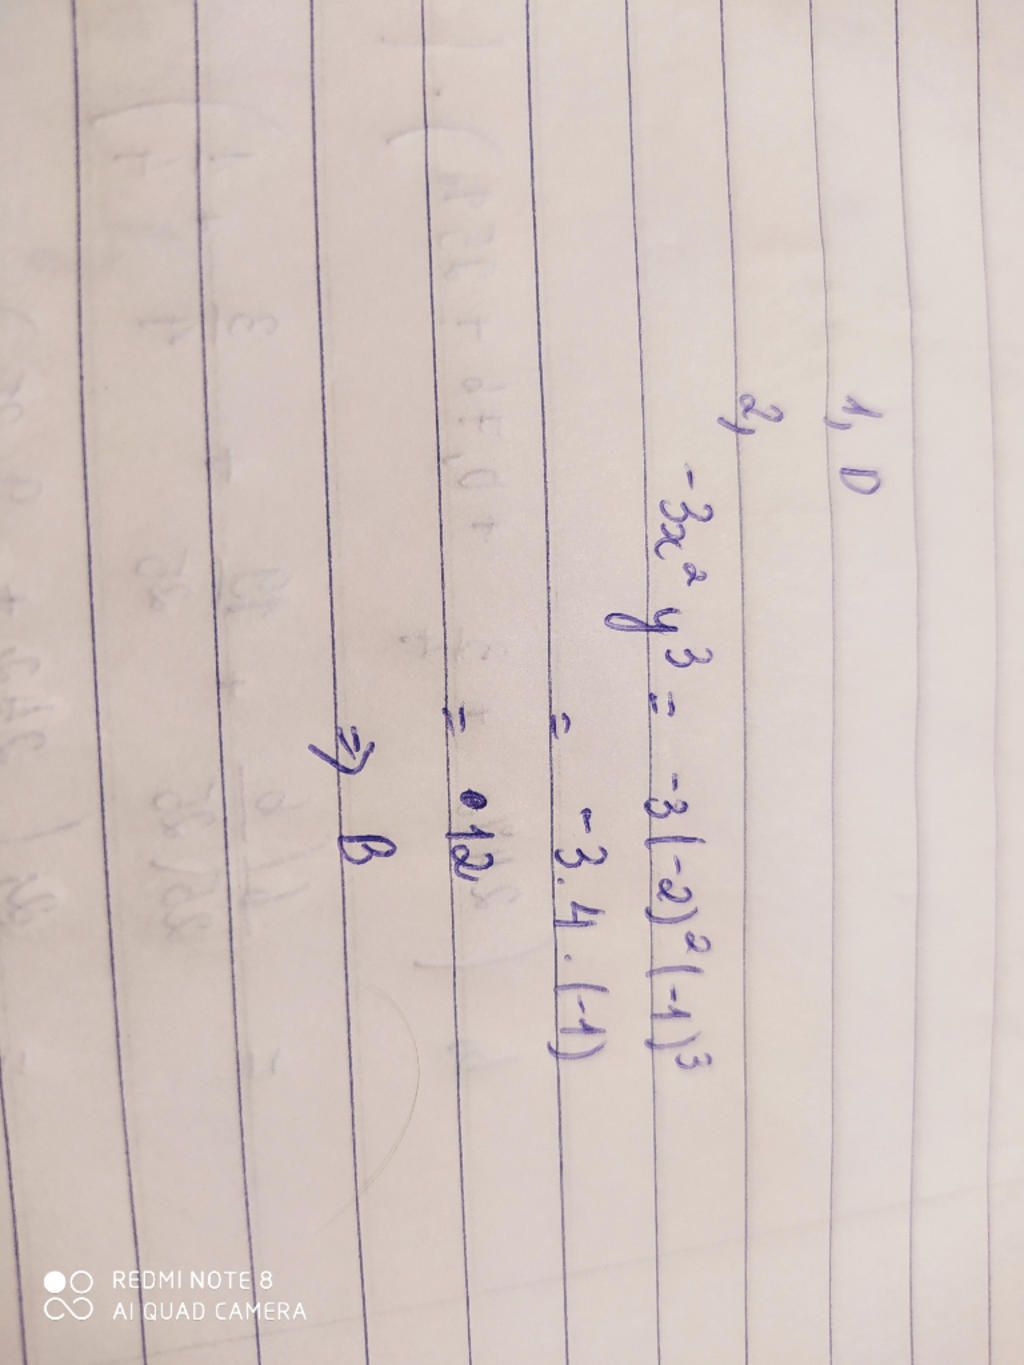 1, D
2,
-3x² y³ = -3(-2)²(-1)³
= -3.4.(-1)
= 12
=> B
REDMI NOTE 8
AI QUAD CAMERA